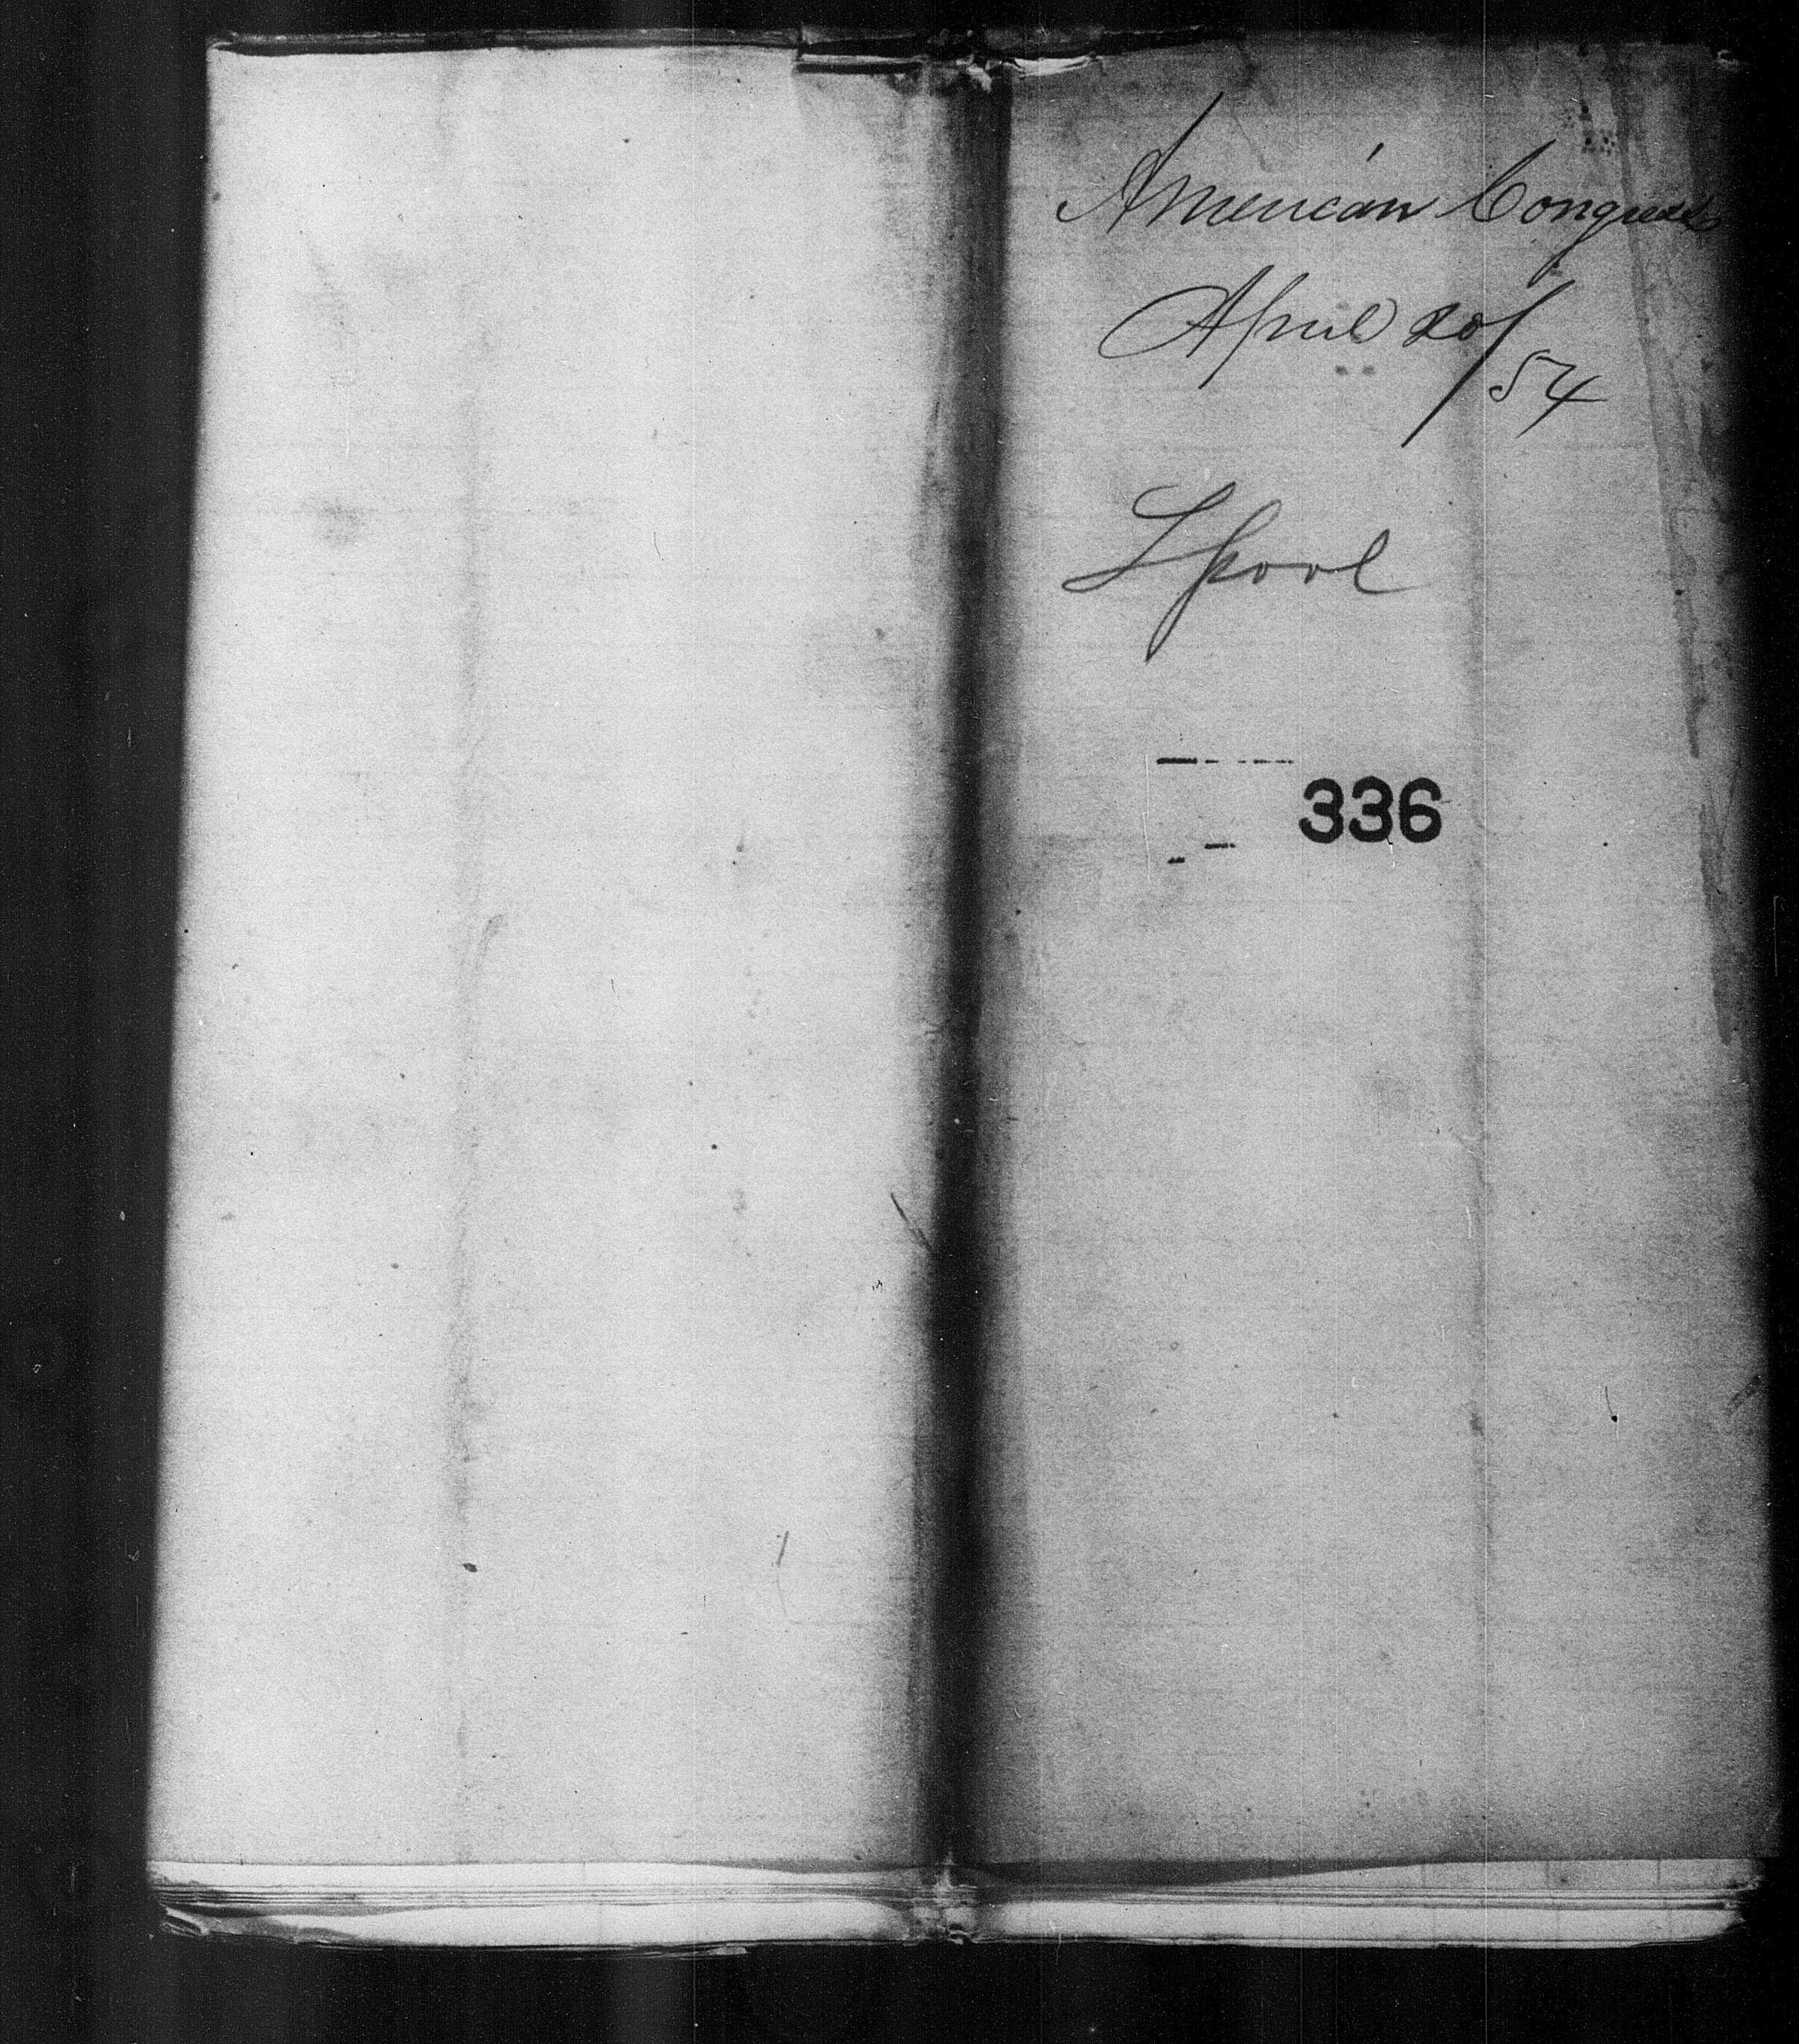 American Congress
April 20/
54
Lpool
336